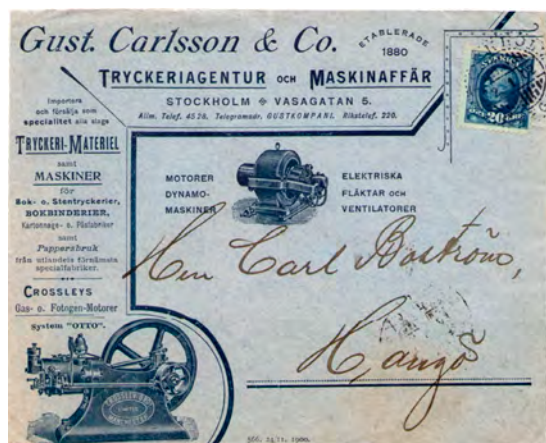 Gust. Carlsson & Co.
ETABLERADE
1880
TRYCKERIAGENTUR OCH MASKINAFFÄR
STOCKHOLM VASAGATAN 5.
Allm. Telef. 45 28. Telegramadr. GUSTKOMPANI. Rikstelef. 220.
SVERIGE
20 ÖRE
Importera
och försälja som
specialitet alla slags
TRYCKERI-MATERIEL
samt
MASKINER
för
Bok- o. Stentryckerier,
BOKBINDERIER,
Kartonnage- o. Påsfabriker
samt
Pappersbruk
från utlandets förnämsta
specialfabriker.
CROSSLEYS
Gas- o. Fotogen-Motorer
System "OTTO".
MOTORER
DYNAMO-
MASKINER
ELEKTRISKA
FLÄKTAR OCH
VENTILATORER
Herr Carl Boström,
Hangö
CROSSLEY BROS
LIMITED
MANCHESTER
24 11. 1900.